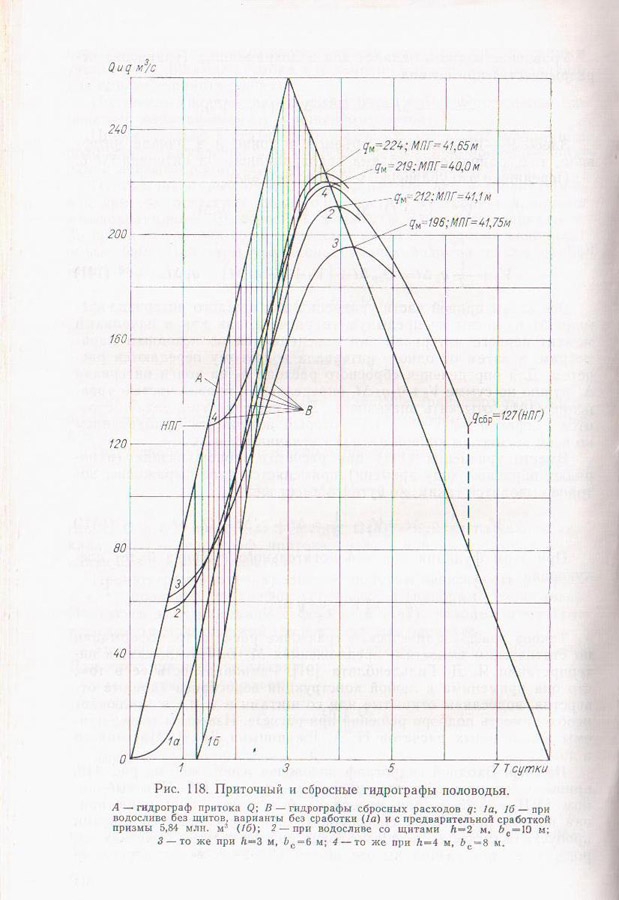 Q и q м³/с
240
qм=224; МПГ=41,65м
qм=219; МПГ=40,0м
4
qм=212; МПГ=41,1м
2
qм=196; МПГ=41,75м
3
200
160
А
4
В
НПГ
qсбр=127(НПГ)
120
80
3
2
40
1а
1б
0
1
3
5
7 Т сутки
Рис. 118. Приточный и сбросные гидрографы половодья.
А — гидрограф притока Q; В — гидрографы сбросных расходов q: 1а, 1б — при
водосливе без щитов, варианты без сработки (1а) и с предварительной сработкой
призмы 5,84 млн. м³ (1б); 2 — при водосливе со щитами h=2 м, bс=10 м;
3 — то же при h=3 м, bс=6 м; 4 — то же при h=4 м, bс=8 м.